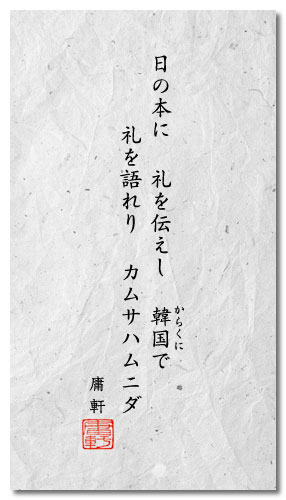 日の本に 礼を伝えし 韓国で
からくに
礼を語れり カムサハムニダ
庸軒
庸軒